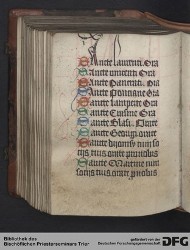 Sancte laurenti Ora
Sancte vincenti Ora
Sancte Ora
Sancte Ora
Sancte lamperte Ora
Sancte Ora
Sancte Blasi Orate
Sancte Georgi orate
Sancte dyonisi cum so
cijs tuis orate pro nobis
Sancte Maurici cum
socijs tuis orate pro nobis
Bibliothek des
Bischöflichen Priesterseminars Trier
gefördert von der
Deutschen Forschungsgemeinschaft
DFG